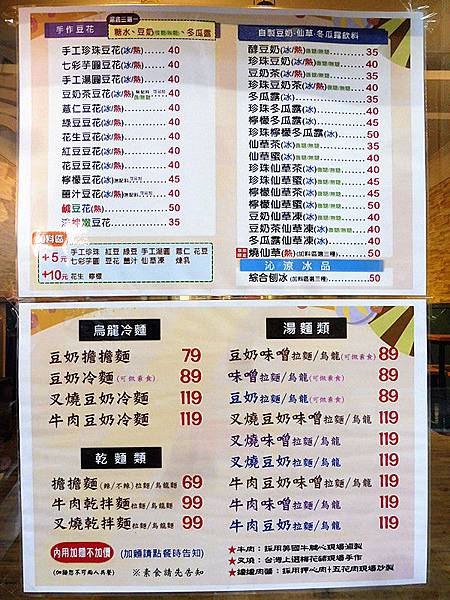 手作豆花
湯底三選一
糖水、豆奶(微糖/無糖)、冬瓜露
手工珍珠豆花(冰/熱) 40
七彩芋圓豆花(冰/熱) 40
手工湯圓豆花(冰/熱) 40
豆奶茶豆花(冰/熱) 40
薏仁豆花(冰/熱) 40
綠豆豆花(冰/熱) 40
花生豆花(冰/熱) 40
紅豆豆花(冰/熱) 40
花豆豆花(冰/熱) 40
檸檬豆花(冰) 45
薑汁豆花(冰/熱) 40
鹹豆花(熱) 50
嫩豆花 35
+5元 手工珍珠 紅豆 綠豆 手工湯圓 薏仁 花豆
七彩芋圓 豆花 薑汁 仙草凍 煉乳
+10元 花生 檸檬
自製豆奶、仙草、冬瓜露飲料
醇豆奶(冰/熱)微糖/無糖 35
珍珠豆奶(冰/熱)微糖/無糖 40
豆奶茶(冰/熱)微糖/無糖 35
珍珠豆奶茶(冰/熱)微糖/無糖 40
冬瓜露(冰) 35
珍珠冬瓜露(冰) 40
檸檬冬瓜露(冰) 45
珍珠檸檬冬瓜露(冰) 50
仙草茶(冰)微糖/無糖 35
仙草蜜(冰)微糖/無糖 40
珍珠仙草茶(冰)微糖/無糖 40
珍珠仙草蜜(冰)微糖/無糖 45
檸檬仙草茶(冰)微糖/無糖 45
檸檬仙草蜜(冰)微糖/無糖 50
豆奶仙草凍(冰)微糖/無糖 40
豆奶茶仙草凍(冰)微糖/無糖 40
冬瓜露仙草凍(冰) 40
燒仙草(熱)(加料區選三種) 50
沁涼冰品
綜合刨冰(加料區選三種) 50
烏龍冷麵
豆奶擔擔麵 79
豆奶冷麵(可做素食) 89
叉燒豆奶冷麵 119
牛肉豆奶冷麵 119
乾麵類
擔擔麵(辣/不辣)拉麵/烏龍麵 69
牛肉乾拌麵拉麵/烏龍麵 99
叉燒乾拌麵拉麵/烏龍麵 99
內用加麵不加價 (加麵請點餐時告知)
(加麵恕不可兩人共餐) ※素食請先告知
湯麵類
豆奶味噌拉麵/烏龍(可做素食) 89
味噌拉麵/烏龍(可做素食) 89
豆奶拉麵/烏龍(可做素食) 89
叉燒豆奶味噌拉麵/烏龍 119
叉燒味噌拉麵/烏龍 119
叉燒豆奶拉麵/烏龍 119
牛肉豆奶味噌拉麵/烏龍 119
牛肉味噌拉麵/烏龍 119
牛肉豆奶拉麵/烏龍 119
★牛肉：採用美國牛腱心現場滷製
★叉燒：台灣上選梅花豬現場手作
★擔擔肉醬：採用胛心肉+五花肉現場炒製